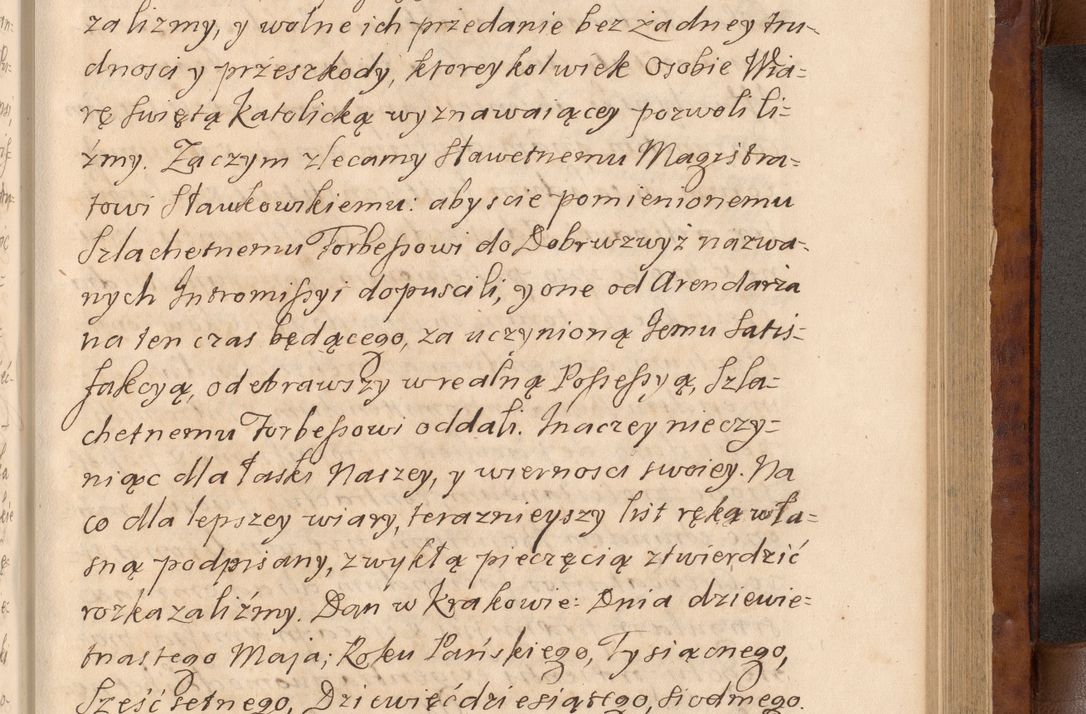 zalizmy, y wolne ich przedanie bez żadney tru-
dnosci y przeszkody, ktoreykolwiek osobie Wia=
rę Swiętą Katolicką wyznawaiącey pozwoli li=
źmy. Zaczym zlecamy Sławetnemu Magistra=
towi Sławkowskiemu: abyscie pomienionemu
Szlachetnemu Forbeſsowi do Dobr wzwyż nazwa=
nych Intromiſsyi dopuscili, y one od Arendarża
na ten czas będącego, za uczynioną Jemu Satis=
fakcyą, odebrawszy w realną Poſseſsyą, Szla=
chetnemu Forbeſsowi oddali. Inaczey nieczy=
niąc dla Łaski Naszey, y wiernosci swoiey. Na
co dla lepszey wiary, teraznieyszy list ręką wła=
sną podpisany, zwykłą pieczęcią ztwierdzić
rozkazaliźmy. Dan w Krakowie: Dnia dziewie=
tnastego Maja; Roku Pańskiego, Tysiącnego,
Sześćsetnego, Dziewięćdziesiątego, Siodmego.